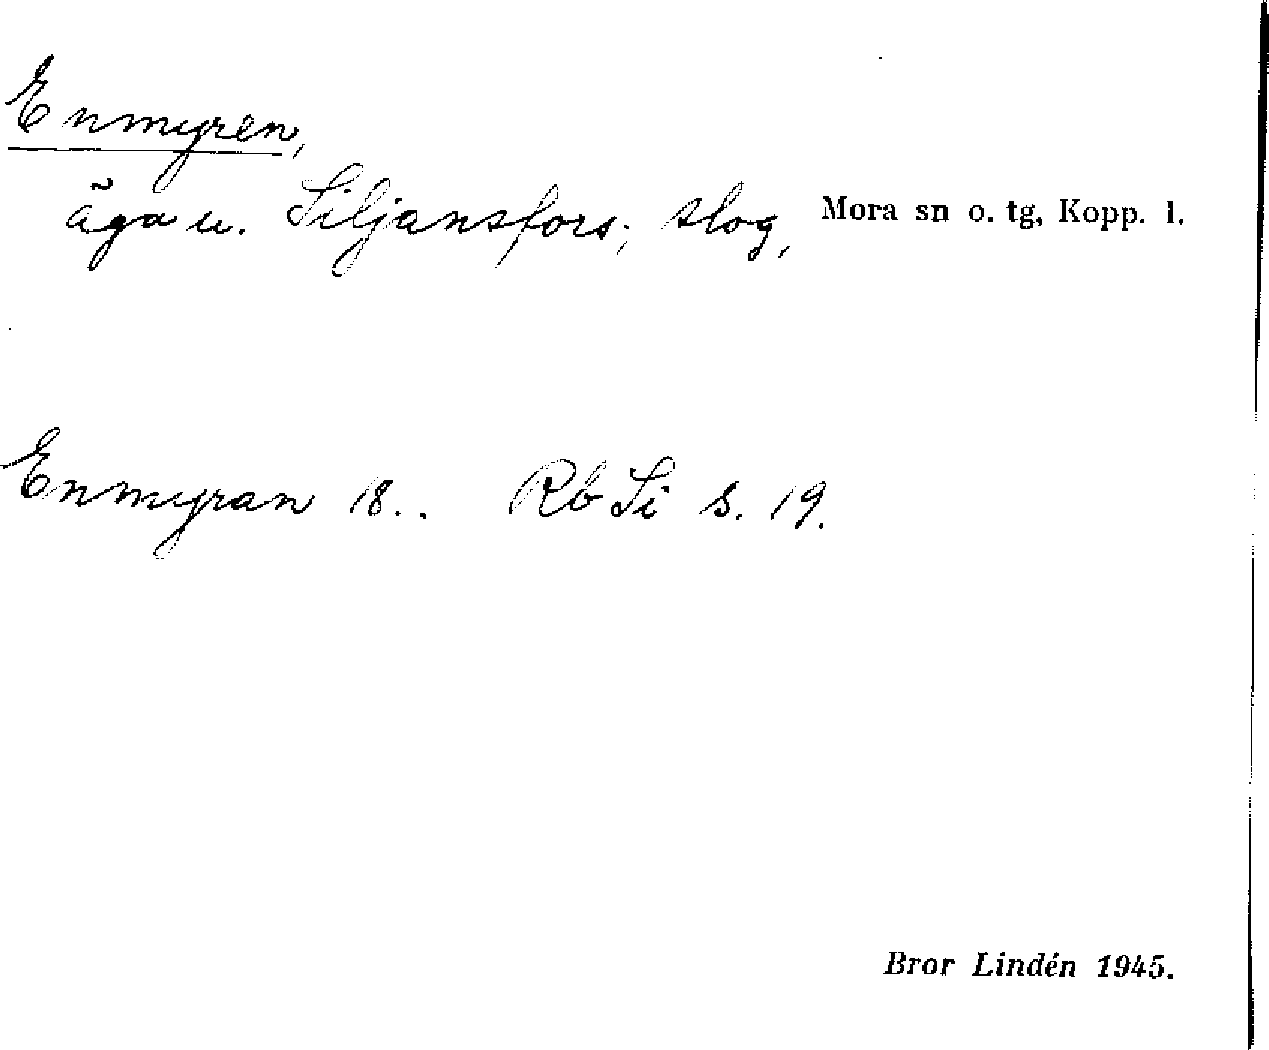 Enmyren,
äga u. Siljansfors; slog, Mora sn o. tg, Kopp. l.
Enmyran 18.. Rb Si s. 19.
Bror Lindén 1945.